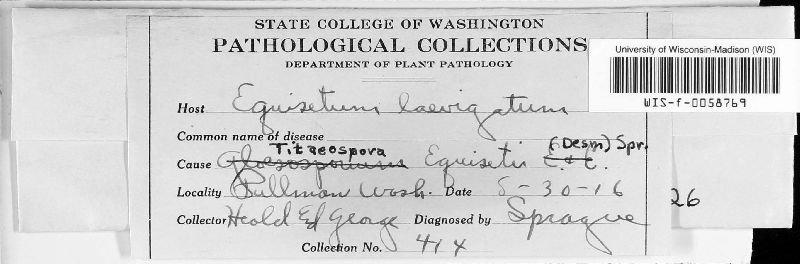 STATE COLLEGE OF WASHINGTON
PATHOLOGICAL COLLECTIONS
DEPARTMENT OF PLANT PATHOLOGY
University of Wisconsin-Madison (WIS)
WIS-f-0058769
Host Equisetum laevigatum
Common name of disease
Titaeospora (Desm) Spr.
Cause Gloeosporium Equiseti E. & E.
Locality Pullman Wash. Date 8-30-16
26
Collector Heald Ed George Diagnosed by Sprague
Collection No. 414